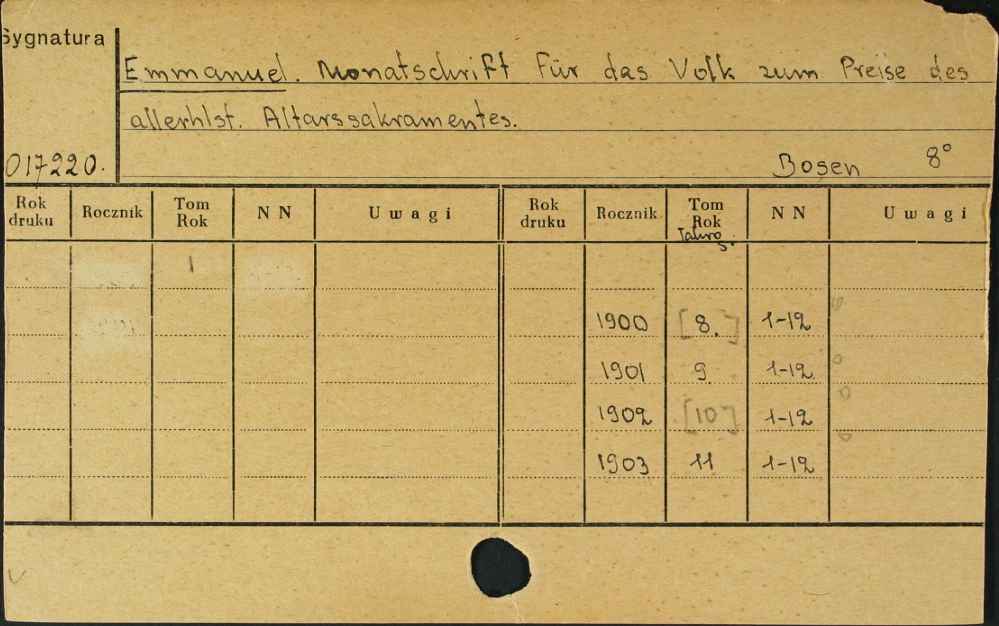 Sygnatura
Emmanuel. Monatschrift für das Volk zum Preise des
allerhlst. Altarssakramentes.
017220.
Bosen 8°
Rok druku Rocznik Tom Rok NN Uwagi Rok druku Rocznik Tom Rok NN Uwagi
Jahrg.
1
1900 [8.] 1-12
1901 9 1-12
1902 [10] 1-12
1903 11 1-12